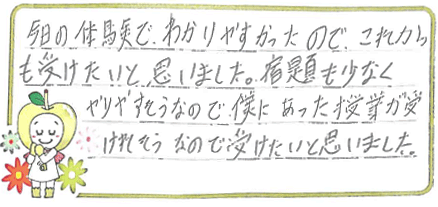 今日の体験で、わかりやすかったので、これから
も受けたいと、思いました。宿題も少なく
やりやすそうなので、僕にあった授業が受
けれそうなので受けたいと思いました。